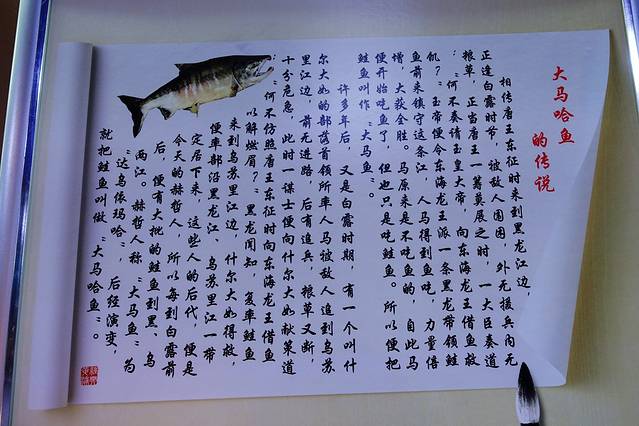 大马哈鱼
的传说
相传唐王东征时来到黑龙江边，
正逢白露时节，被敌人围困，外无援兵内无
粮草，正当唐王一筹莫展之时，一大臣奏道
：“何不奏请玉皇大帝，向东海龙王借鱼救
饥？”玉帝便令东海龙王派一条黑龙带领鲑
鱼前来镇守这条江，人马得到鱼吃，力量倍
增，大获全胜。马原来是不吃鱼的，自此马
便开始吃鱼了，但也只是吃鲑鱼。所以便把
鲑鱼叫作“大马鱼”。
许多年后，又是白露时期，有一个叫什
尔大如的部落首领所率人马被敌人追到乌苏
里江边，前无进路，后有追兵，粮草又断，
十分危急，此时一谋士便向什尔大如献策道
：“何不仿照唐王东征时向东海龙王借鱼
以解燃眉？”黑龙闻知，复率鲑鱼
来到乌苏里江边，什尔大如得救，
便率部沿黑龙江、乌苏里江一带
定居下来，这些人的后代，便是
今天的赫哲人，所以每到白露前
后，便有大批的鲑鱼到黑、乌
两江。赫哲人称“大马鱼”为
“达乌依玛哈”，后经演变，
就把鲑鱼叫做“大马哈鱼”。